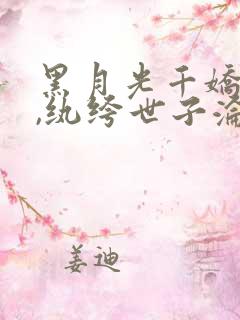 黑月光千嬌
,纨绔世子淪
姜迪